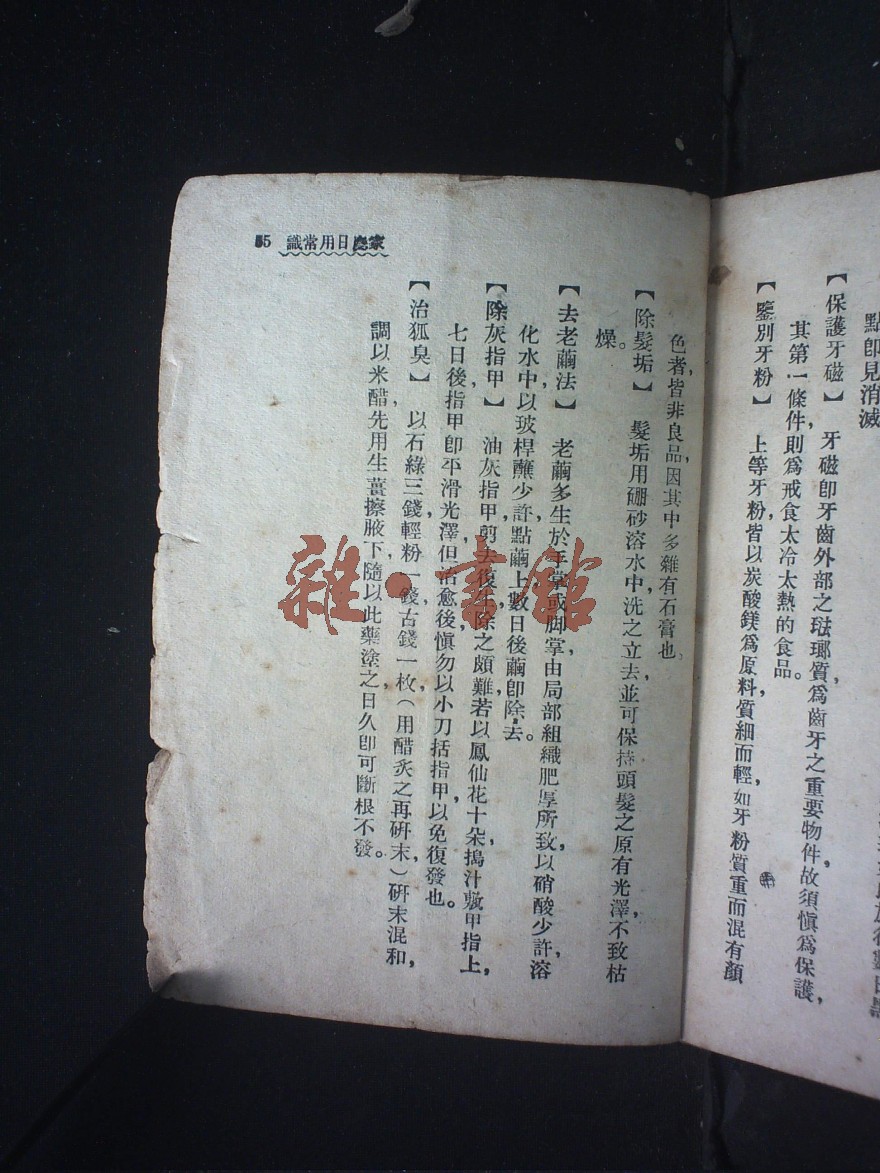 點卽見消滅
【保護牙磁】 牙磁卽牙齒外部之琺瑯質,爲齒牙之重要物件,故須愼爲保護,
其第一條件,則爲戒食太冷太熱的食品。
【鑒別牙粉】 上等牙粉,皆以炭酸鎂爲原料,質細而輕,如牙粉質重而混有顏
家庭日用常識 55
色者,皆非良品,因其中多雜有石膏也。
【除髮垢】 髮垢用硼砂溶水中洗之立去,並可保持頭髮之原有光澤,不致枯
燥。
【去老繭法】 老繭多生於手掌或脚掌,由局部組織肥厚所致,以硝酸少許,溶
化水中,以玻桿蘸少許,點繭上,數日後繭卽除去。
【除灰指甲】 油灰指甲,剪去復生,除之頗難,若以鳳仙花十朵搗汁,敷甲指上,
七日後,指甲卽平滑光澤,但治愈後,愼勿以小刀括指甲,以免復發也。
【治狐臭】 以石綠三錢,輕粉一錢,古錢一枚,(用醋炙之再硏末,)硏末混和,
調以米醋,先用生薑擦腋下,隨以此藥塗之,日久卽可斷根不發。
雜·書館